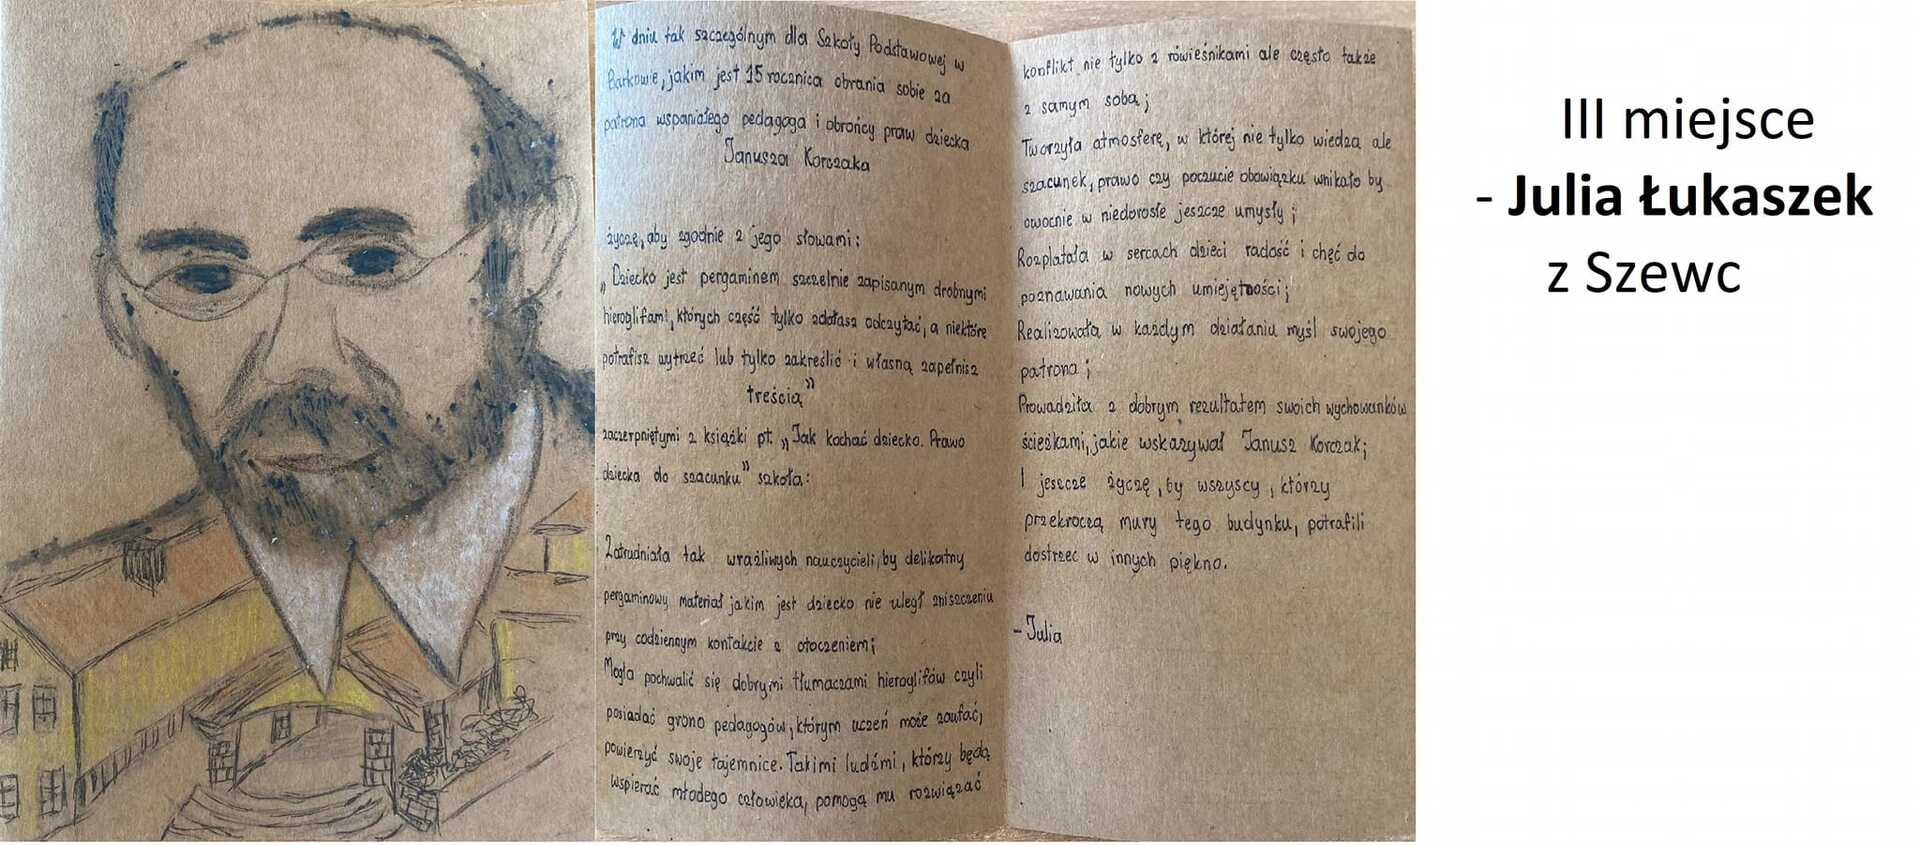 W dniu tak szczególnym dla Szkoły Podstawowej w
Barkowie, jakim jest 15 rocznica obrania sobie za
patrona wspaniałego pedagoga i obrońcy praw dziecka
Janusza Korczaka
życzę, aby zgodnie z jego słowami:
„Dziecko jest pergaminem szczelnie zapisanym drobnymi
hieroglifami, których część tylko zdołasz odczytać, a niektóre
potrafisz wytrzeć lub tylko zakreślić i własną zapełnisz
treścią”
zaczerpniętymi z książki pt. „Jak kochać dziecko. Prawo
dziecka do szacunku” szkoła:
Zatrudniała tak wrażliwych nauczycieli, by delikatny
pergaminowy materiał jakim jest dziecko nie uległ zniszczeniu
przy codziennym kontakcie z otoczeniem;
Mogła pochwalić się dobrymi tłumaczami hieroglifów czyli
posiadać grono pedagogów, którym uczeń może zaufać,
powierzyć swoje tajemnice. Takimi ludźmi, którzy będą
wspierać młodego człowieka, pomogą mu rozwiązać
konflikt nie tylko z rówieśnikami ale często także
z samym sobą;
Tworzyła atmosferę, w której nie tylko wiedza ale
szacunek, prawo czy poczucie obowiązku wnikało by
owocnie w niedorosłe jeszcze umysły;
Rozplatała w sercach dzieci radość i chęć do
poznawania nowych umiejętności;
Realizowała w każdym działaniu myśl swojego
patrona;
Prowadziła z dobrym rezultatem swoich wychowanków
ścieżkami, jakie wskazywał Janusz Korczak;
I jeszcze życzę, by wszyscy, którzy
przekroczą mury tego budynku, potrafili
dostrzec w innych piękno.
- Julia
III miejsce
- Julia Łukaszek
z Szewc